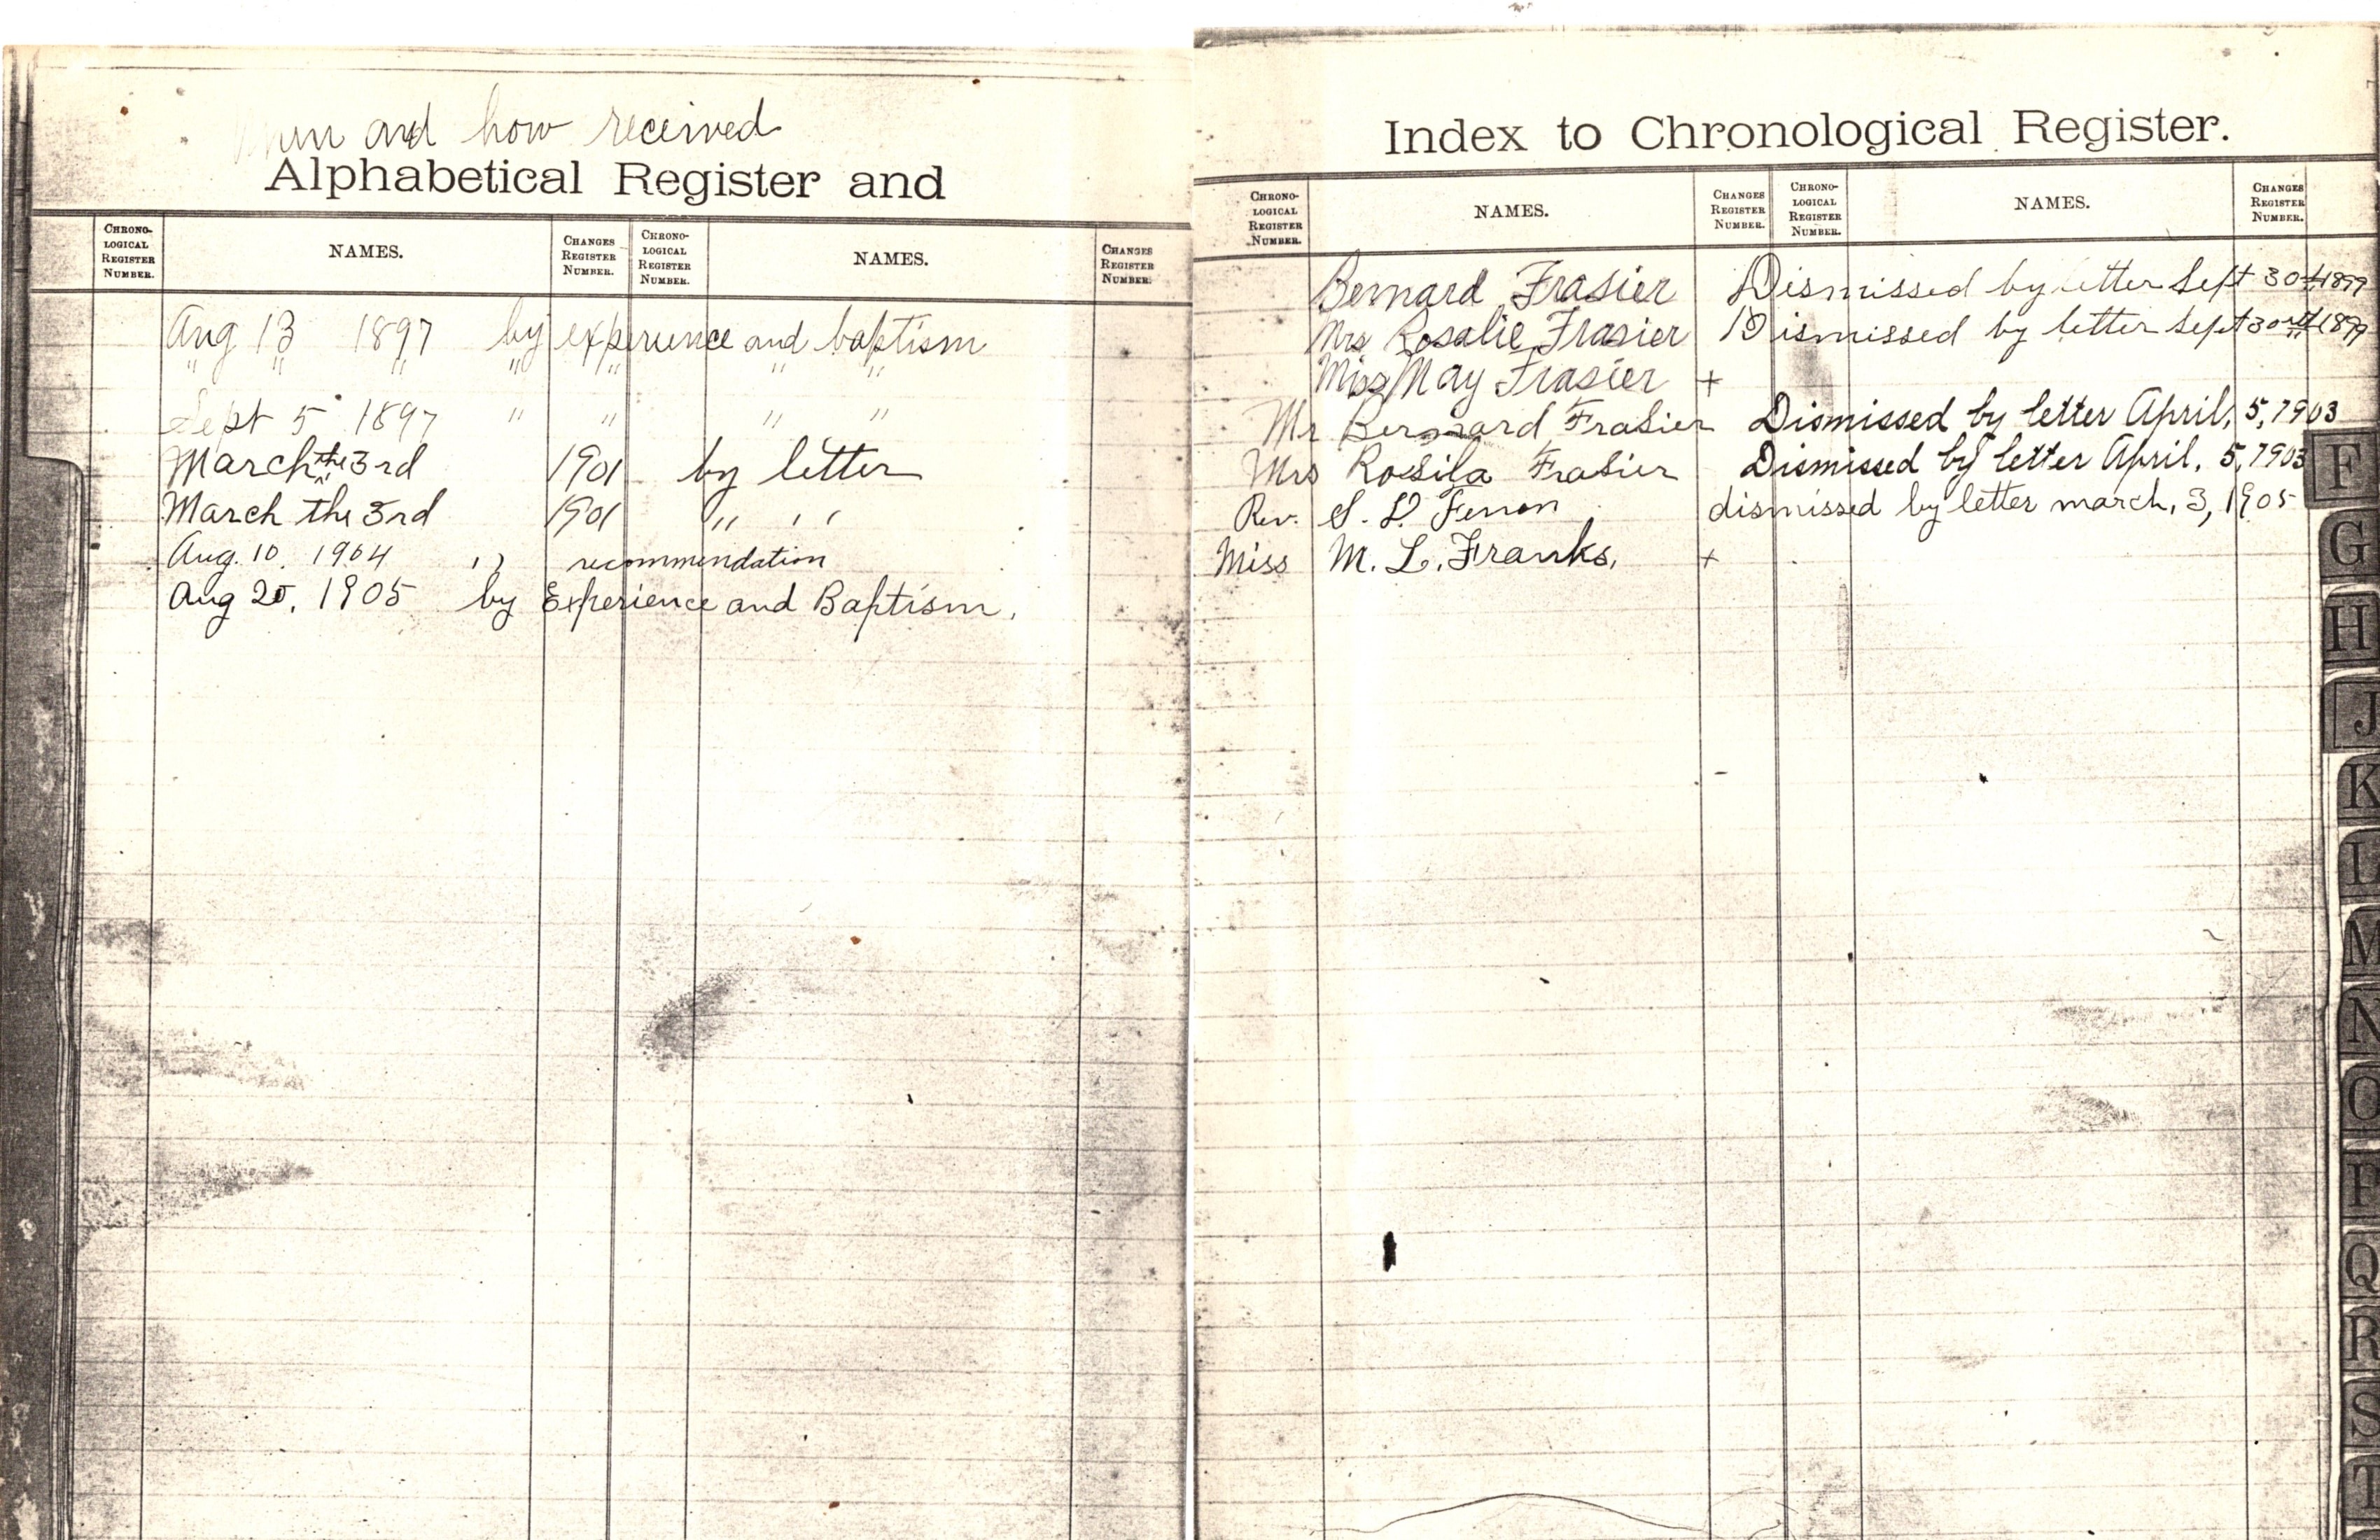 When and how received
Alphabetical Register and
CHRONO-
LOGICAL
REGISTER
NUMBER.
NAMES.
CHANGES
REGISTER
NUMBER.
CHRONO-
LOGICAL
REGISTER
NUMBER.
NAMES.
CHANGES
REGISTER
NUMBER.
Aug 13 1897 by experience and baptism
" " " " " " "
Sept 5 1897 " " " "
March the 3rd 1901 by letter
March the 3rd 1901 " "
Aug. 10. 1904 " recommendation
Aug 20, 1905 by Experience and Baptism.
Index to Chronological Register.
CHRONO-
LOGICAL
REGISTER
NUMBER.
NAMES.
CHANGES
REGISTER
NUMBER.
CHRONO-
LOGICAL
REGISTER
NUMBER.
NAMES.
CHANGES
REGISTER
NUMBER.
Bernard Frasier Dismissed by letter Sept 30th 1899
Mrs Rosalie Frasier Dismissed by letter Sept 30th 1899
Miss May Frasier +
Mr Bernard Frasier Dismissed by letter April, 5, 1903
Mrs Rosila Frasier Dismissed by letter April, 5, 1903
Rev. S. D. Fenon dismissed by letter march, 3, 1905
Miss M. L. Franks, +
F
G
H
J
K
L
M
N
O
P
Q
R
S
T